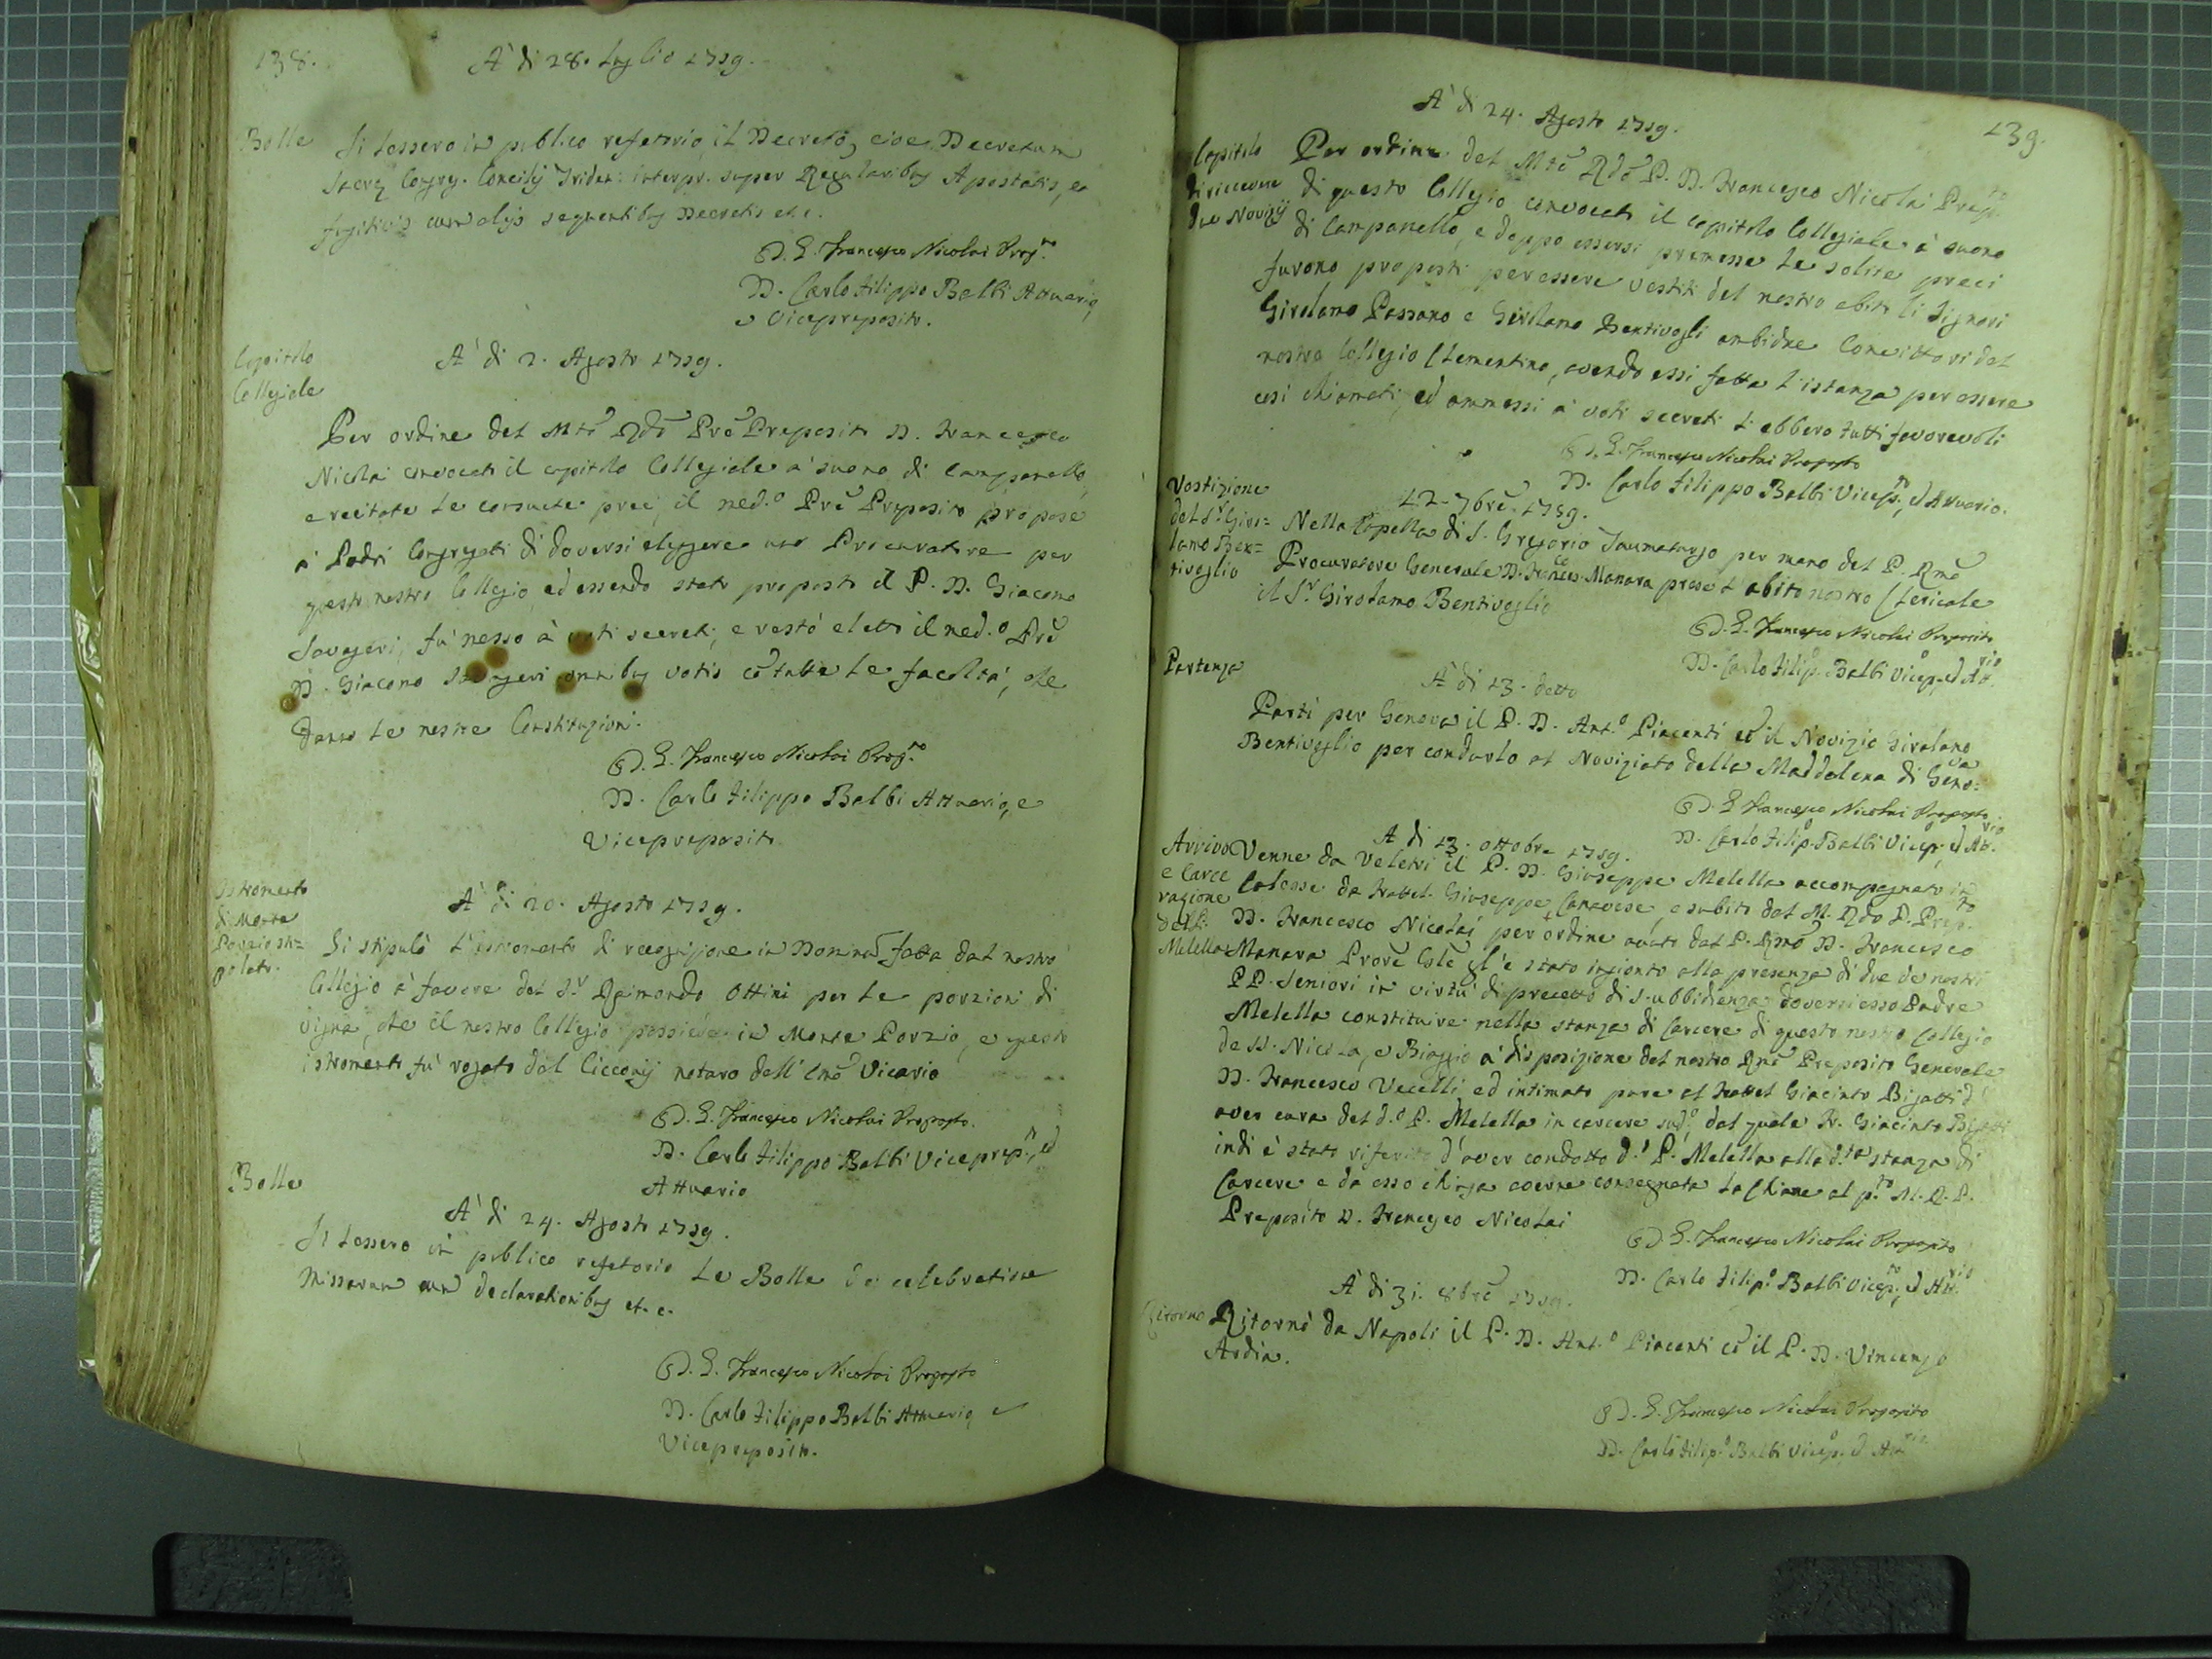 138.
A' di 28. Luglio 1719.
Bolle
Si lessero in publico refetorio il Decreto, cioe Decretum
Sacrę Congrg. Concilij Triden: interpr. super Regularibus Apostatis, et
fugitivis cum alijs sequentibus Decretis etc.
D. G. Francesco Nicolai Prep.to
D. Carlo Filippo Balbi Attuario,
e Vicepreposito.
Capitolo
Collegiale
A' di 2. Agosto 1719.
Per ordine del Mtõ Rdõ Prẽ Preposito D. Francesco
Nicolai convocato il capitolo Collegiale a' suono di Campanello,
e recitate le consuete preci, il med.o Prẽ Preposito propose
a' Padri Congregati di doversi eleggere un Procuratore per
questo nostro Collegio, ed essendo stato proposto il P. D. Giacomo
Savageri, fu' messo à voti secreti, e restò eletto il med.o Prẽ
D. Giacomo Savageri omnibus votis cõ tutte le facoltà, che
danno le nostre Constituzioni.
D. G. Francesco Nicolai Prep.to
D. Carlo Filippo Balbi Attuario, e
Vicepreposito
Istromento
di Monte
Porzio sti=
polato.
A' di 20. Agosto 1719.
Si stipulò l'istromento di recognizione in Dominũ fatta dal nostro
Collegio a' favore del S.r Raimondo Ottini per le porzioni di
vigna, che il nostro Collegio possiede in Monte Porzio, e questo
istromento fu' rogato dal Cicconij notaro dell' Emõ Vicario
D. G. Francesco Nicolai Preposto.
D. Carlo Filippo Balbi Viceprep.to, ed
Attuario
Bolle
A' di 24. Agosto 1719.
Si lessero in publico refetorio le Bolle de celebratione
Missarum cum declarationibus et. c.
D. G. Francesco Nicolai Preposto
D. Carlo Filippo Balbi Attuario, e
Vicepreposito.
139.
A' di 24. Agosto 1719.
Capitolo
di ricevere
due Novizij
Per ordine del Mtõ Rdõ P. D. Francesco Nicolai Prep.to
di questo Collegio convocato il capitolo Collegiale à suono
di Campanello, e doppo essersi premesse le solite preci
furono proposti per essere vestiti del nostro abito li Signori
Girolamo Passano e Girolamo Bentivogli ambidue Convittori del
nostro Collegio Clementino, avendo essi fatta l'istanza per essere
così chiamati, ed ammessi a' voti secreti l'ebbero tutti favorevoli
D. G. Francesco Nicolai Preposto
D. Carlo Filippo Balbi Vicep.to, ed Attuario.
Vestizione
del S.r Giro=
lamo Ben=
tivoglio
12. 7brẽ. 1719.
Nella Capella di S. Gregorio Taumaturgo per mano del P. Rmõ
Procuratore Generale D. Franc.co Manara prese l'abito nostro Clericale
il S.r Girolamo Bentivoglio
D. G. Francesco Nicolai Preposito
D. Carlo Filip.o Balbi Vicep.o, ed Att.rio
Partenza
A' di 13. detto
Partì per Genova il P. D. Ant.o Piacenti cõ il Novizio Girolamo
Bentivoglio per condurlo al Noviziato della Maddalena di Geno:va
D. G. Francesco Nicolai Preposto
D. Carlo Filip.o Balbi Vicep.o, ed Att.rio
Arrivo
e Carce
razione
del P.
Melella
A di 13. ottobre 1719.
Venne da Veletri il P. D. Giuseppe Melella accompagnato in
Calesse da Fratel Giuseppe Canavese, e subito dal M. Rdo P. Prep.to
D. Francesco Nicolai per ordine avuto dal P. Rmõ D. Francesco
Manara Prorẽ Gnlẽ gl'è stato ingionto alla presenza di due de nostri
PP. Seniori in virtù di precetto di S. ubbidienza doversi esso Padre
Melella constituire nella stanza di Carcere di questo nostro Collegio
de SS. Nicola, e Biaggio a' disposizione del nostro Rmõ Preposito Generale
D. Francesco Vecelli ed intimato pure al Fratel Giacinto Bigatti d'
aver cura del d.o P. Melella in carcere sud.o, dal quale Fr. Giacinto Bigatti
indi è stato riferito d'aver condotto d.o P. Melella alla d.ta stanza di
Carcere e da esso chiusa averne consegnata la Chiave al p.to M. R. P.
Preposito D. Francesco Nicolai
D. G. Francesco Nicolai Preposito
D. Carlo Filip.o Balbi Vicep.to, ed Att.rio
A' di 31. 8brẽ 1719.
Ritorno
Ritornò da Napoli il P. D. Ant.o Piacenti cõ il P. D. Vincenzo
Ardia.
D. G. Francesco Nicolai Preposito
D. Carlo Filip.o Balbi Vicep.o, ed Att.rio